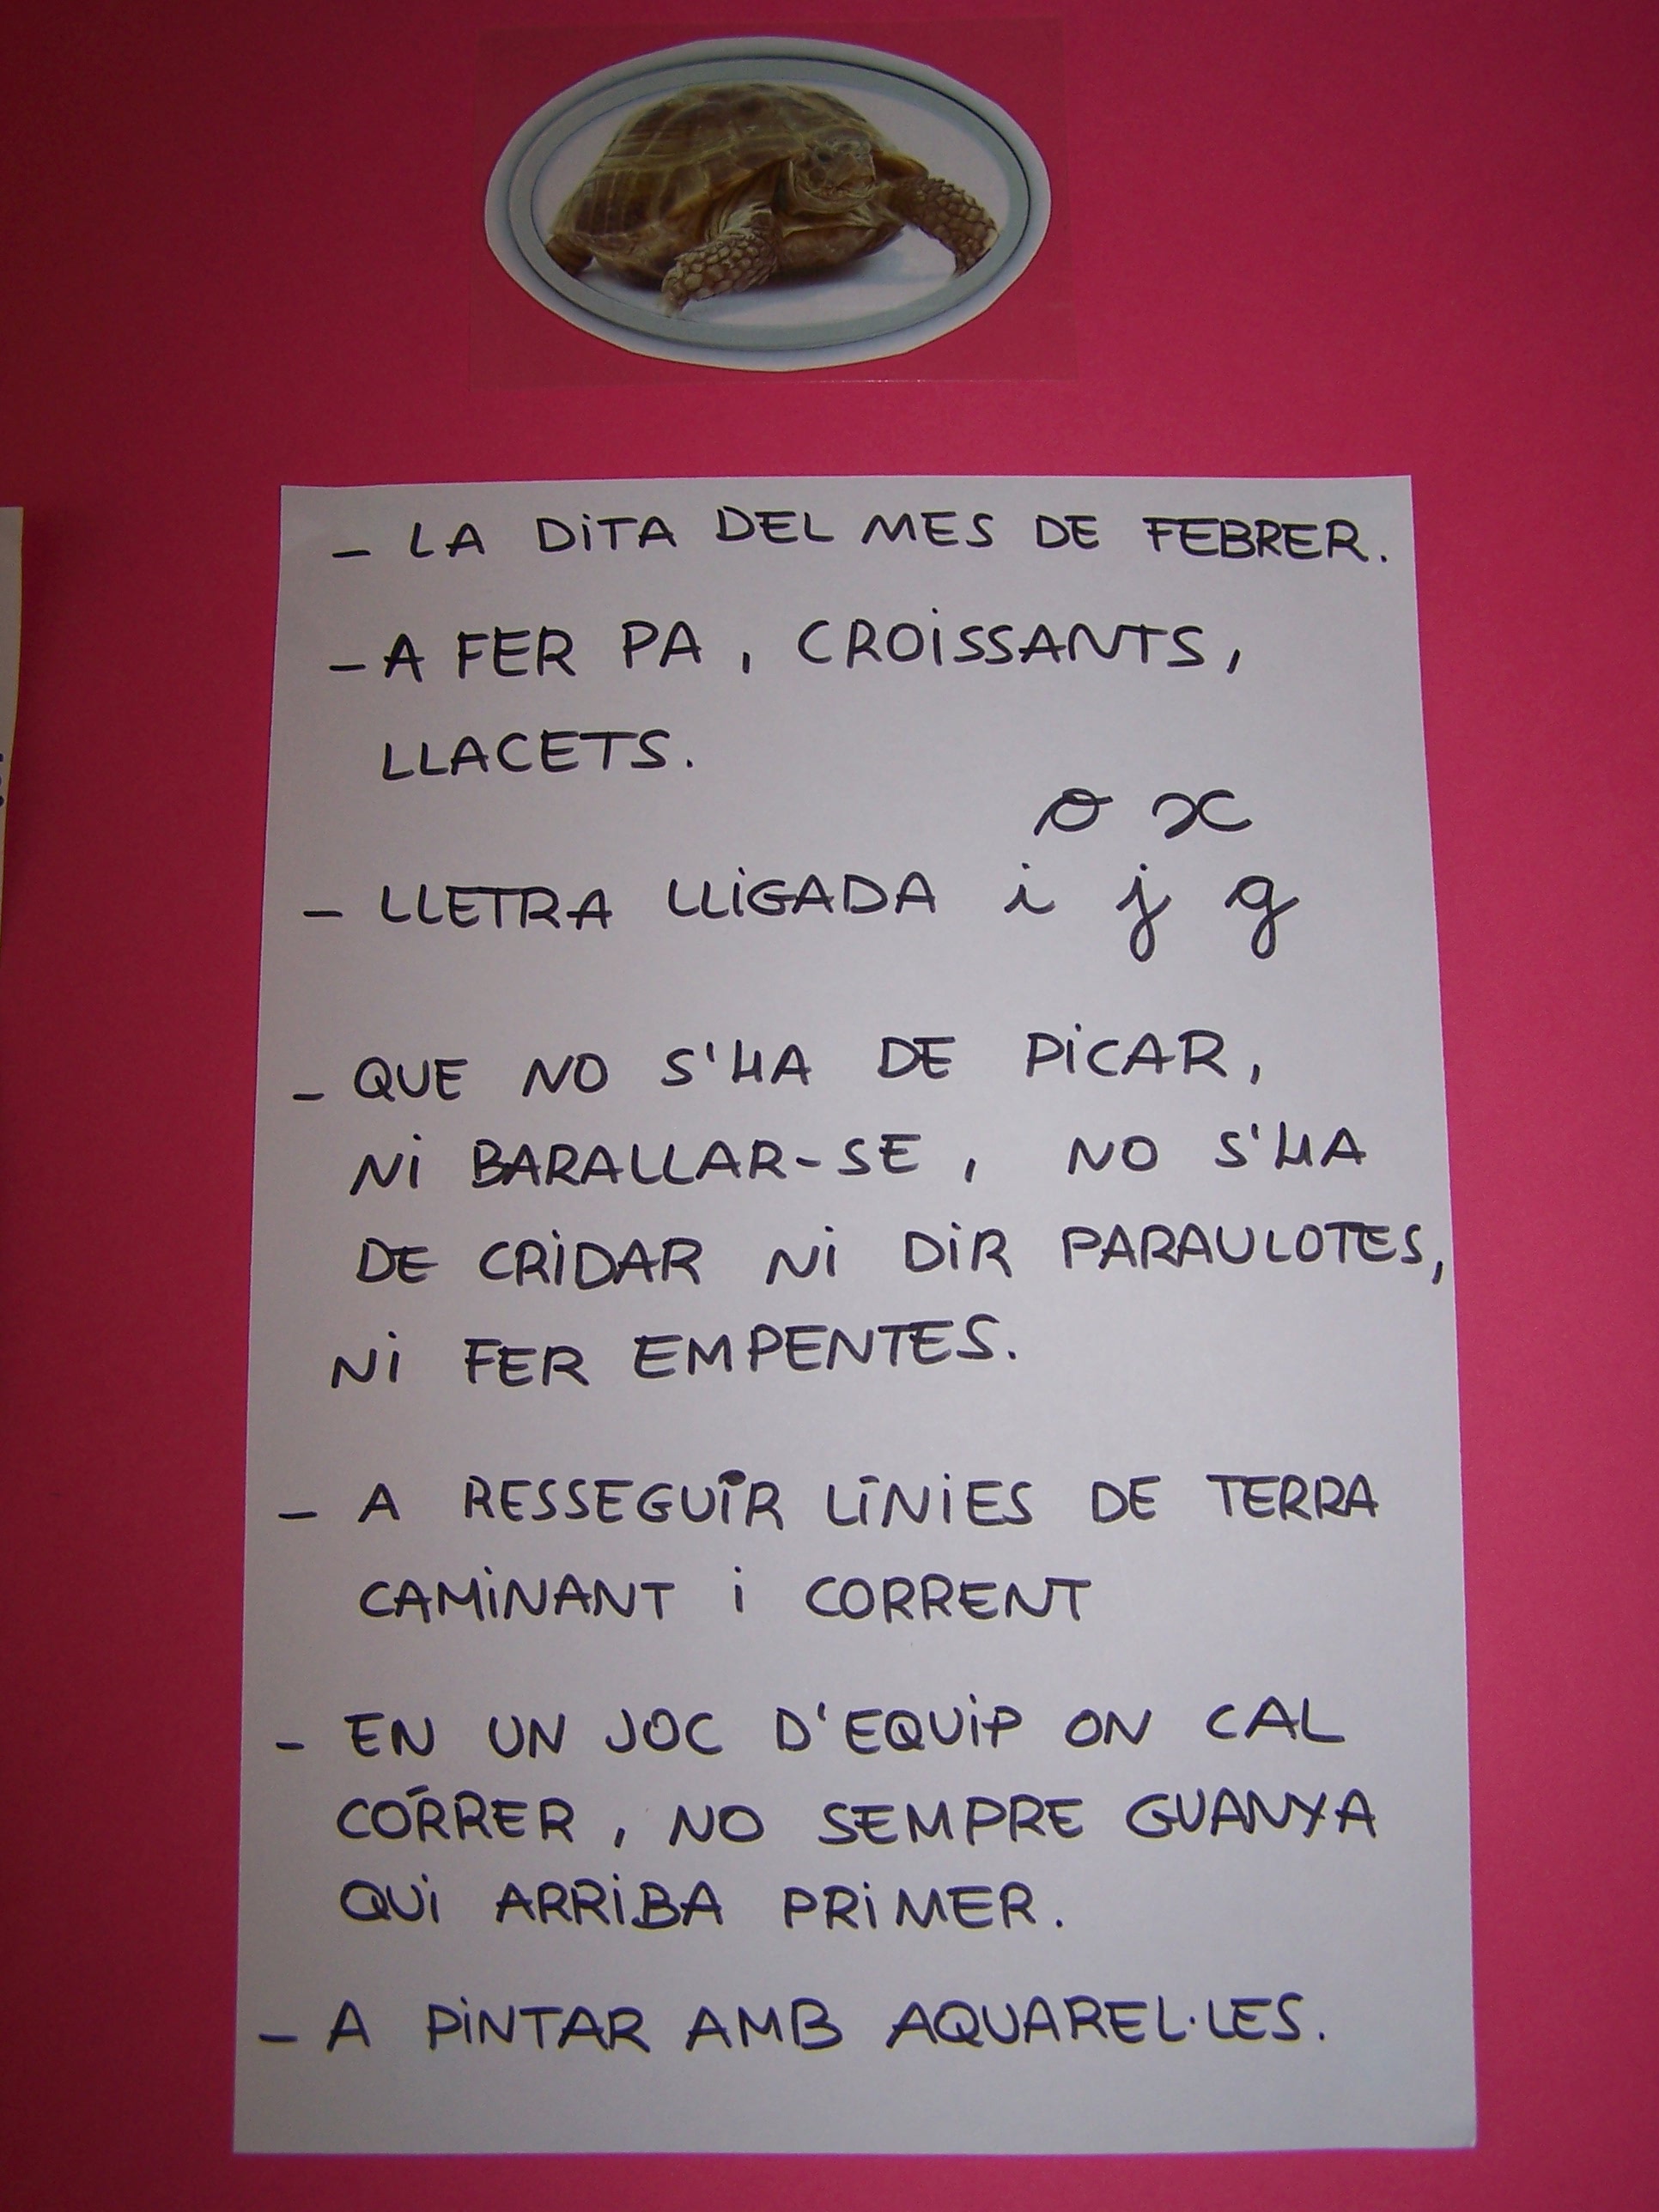 - LA DITA DEL MES DE FEBRER.
- A FER PA, CROISSANTS,
LLACETS.
o x
- LLETRA LLIGADA i j g
- QUE NO S'HA DE PICAR,
NI BARALLAR-SE, NO S'HA
DE CRIDAR NI DIR PARAULOTES,
NI FER EMPENTES.
- A RESSEGUIR LÍNIES DE TERRA
CAMINANT i CORRENT
- EN UN JOC D'EQUIP ON CAL
CÓRRER, NO SEMPRE GUANYA
QUI ARRIBA PRIMER.
- A PINTAR AMB AQUAREL·LES.